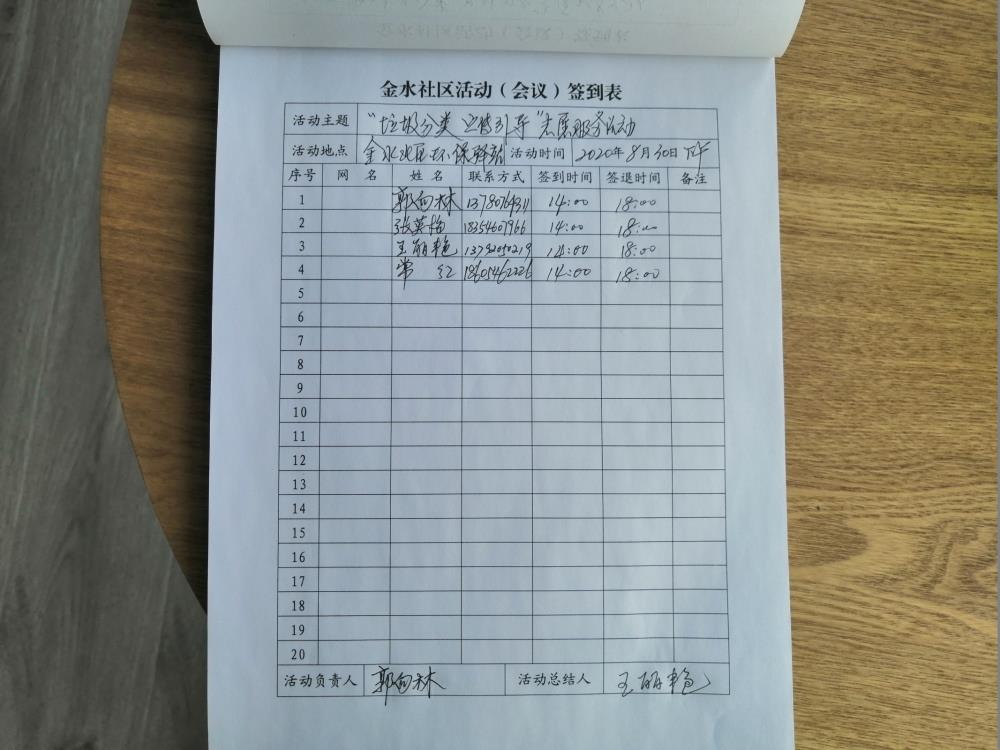 金水社区活动（会议）签到表
活动主题 "垃圾分类 宣传引导"志愿服务活动
活动地点 金水社区环保驿站 活动时间 2020年8月30日 下午
序号 网 名 姓 名 联系方式 签到时间 签退时间 备注
1 郭向林 14:00 18:00
2 张英梅 18354607966 14:00 18:00
3 王丽艳 13792050219 14:00 18:00
4 常 红 18605462226 14:00 18:00
5
6
7
8
9
10
11
12
13
14
15
16
17
18
19
20
活动负责人 郭向林 活动总结人 王丽艳